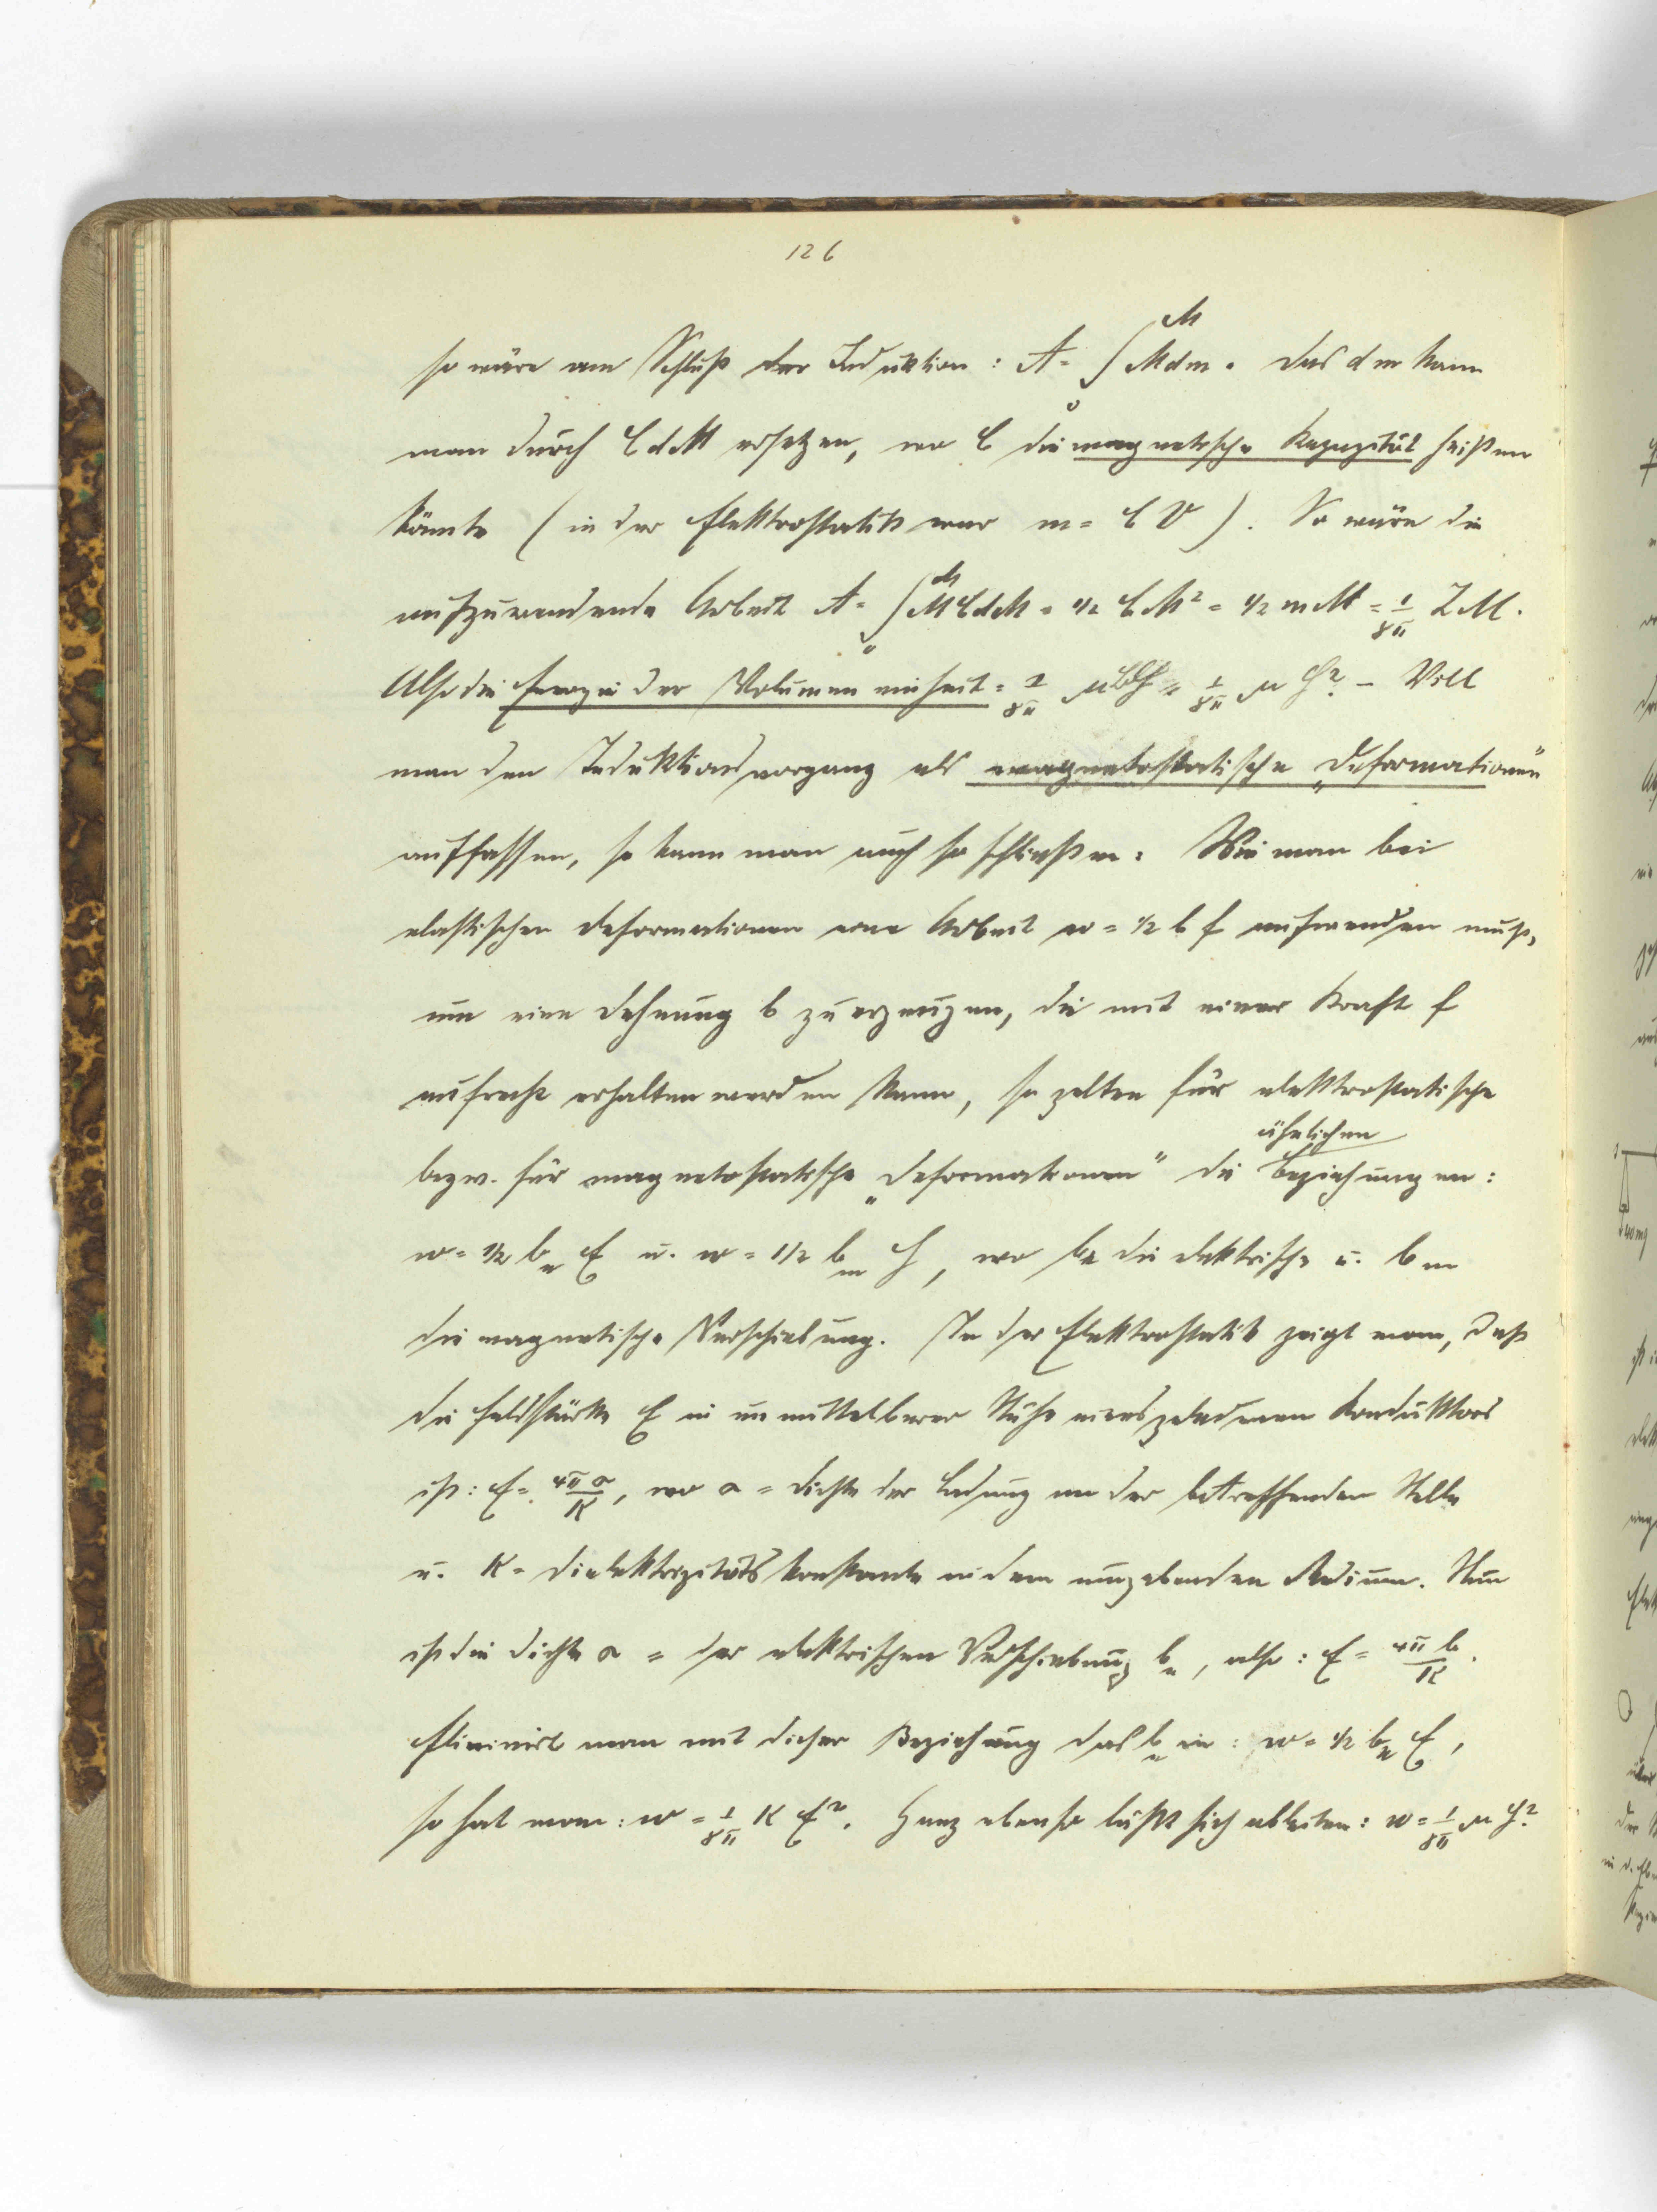 126
so wäre am Schluß der Induktion: A = ∫₀ᴹ M dm. Das dm kann
man durch C dM ersetzen, wo C die magnetische Kapazität heißen
könnte (in der Elektrostatik war m = C V). So wäre die
aufzuwendende Arbeit A = ∫₀ᴹ M C dM = 1/2 C M² = 1/2 m M = 1/8π Z M.
Also die Energie der Volumeneinheit = 1/8π μ H² – Will
man den Induktionsvorgang als magnetostatische „Deformationen“
auffassen, so kann man auch so schließen: Wie man bei
elastischen Deformationen eine Arbeit w = 1/2 b f aufwenden muß,
um eine Dehnung b zu erzeugen, die mit einer Kraft f
aufrecht erhalten werden kann, so gelten für elektrostatische
ähnlichen
bezw. für magnetostatische „Deformationen“ die Beziehungen:
w = 1/2 bₑ E u. w = 1/2 bₘ H, wo bₑ die elektrische u. bm
die magnetische Verschiebung. In der Elektrostatik zeigt man, daß
die Feldstärke E in unmittelbarer Nähe eines geladenen Konduktors
ist: E = 4πσ/K, wo σ = Dichte der Ladung an der betreffenden Stelle
u. K = Dielektrizitätskonstante in dem umgebenden Medium. Nun
ist die Dichte σ = der elektrischen Verschiebung bₑ, also: E = 4π b/K.
Eliminiert man mit dieser Beziehung das bₑ in: w = 1/2 bₑ E,
so hat man: w = 1/8π K E². Ganz ebenso läßt sich ableiten: w = 1/8π μ H².